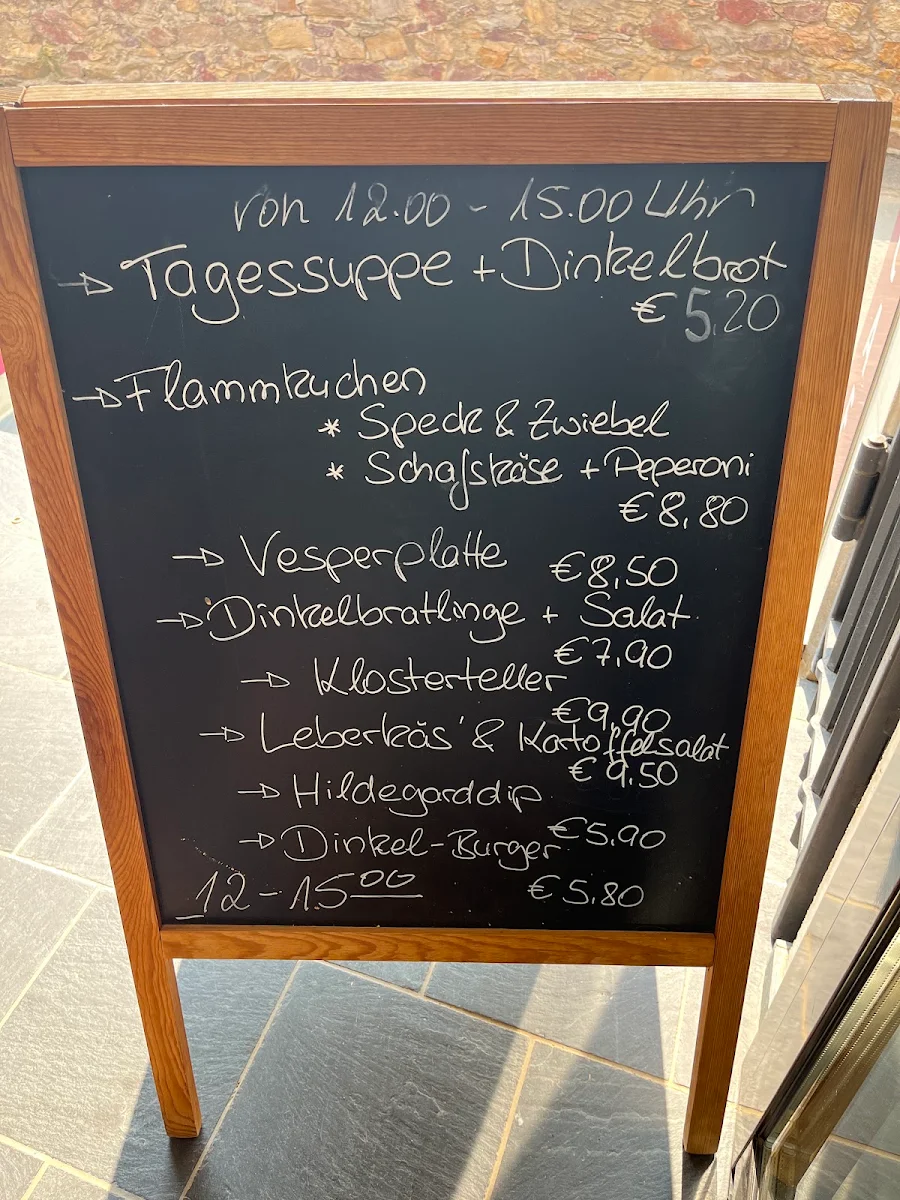 von 12.00 - 15.00 Uhr
→ Tagessuppe + Dinkelbrot
€ 5,20
→ Flammkuchen
* Speck & Zwiebel
* Schafskäse + Peperoni
€ 8,80
→ Vesperplatte
€ 8,50
→ Dinkelbratlinge + Salat
€ 7,90
→ Klosterteller
€ 9,90
→ Leberkäs' & Kartoffelsalat
€ 9,50
→ Hildegarddip
€ 5,90
→ Dinkel-Burger
€ 5,80
12 - 15⁰⁰